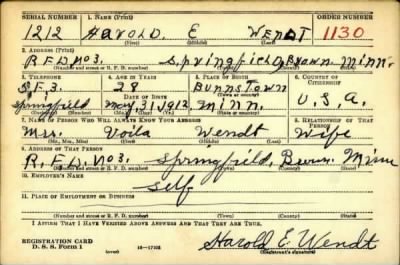 SERIAL NUMBER 1. NAME (Print) ORDER NUMBER
1212 Harold E Wendt 1130
(First) (Middle) (Last)
2. ADDRESS (Print)
R.F.D. No 3. Springfield, Brown, Minn.
(Number and street or R. F. D. number) (Town) (County) (State)
3. TELEPHONE 4. AGE IN YEARS 5. PLACE OF BIRTH 6. COUNTRY OF CITIZENSHIP
28 Burnstown
DATE OF BIRTH
Springfield May 31 1912 Minn. U.S.A.
(Exchange) (Number) (Mo.) (Day) (Yr.) (State or country)
7. NAME OF PERSON WHO WILL ALWAYS KNOW YOUR ADDRESS 8. RELATIONSHIP OF THAT PERSON
Mrs. Voila Wendt Wife
(Mr., Mrs., Miss) (First) (Middle) (Last)
9. ADDRESS OF THAT PERSON
R.F.D. No 3. Springfield, Brown. Minn
(Number and street or R. F. D. number) (Town) (County) (State)
10. EMPLOYER'S NAME
Self
11. PLACE OF EMPLOYMENT OR BUSINESS
(Number and street or R. F. D. number) (Town) (County) (State)
I AFFIRM THAT I HAVE VERIFIED ABOVE ANSWERS AND THAT THEY ARE TRUE.
REGISTRATION CARD
D. S. S. Form 1 16-17105 Harold E. Wendt
(Registrant's signature)